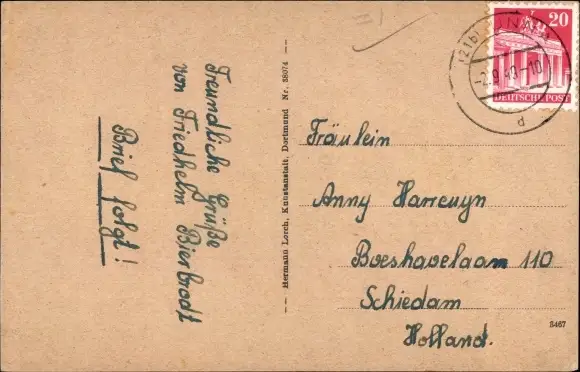 Freundliche Grüße
von Friedhelm Bierbrodt
Brief folgt!
Hermann Lorch, Kunstanstalt, Dortmund Nr. 38074
20
DEUTSCHE POST
(21b) UNNA
-2.9.48-10
d
Fräulein
Anny Harreuyn
Boeshavelaan 110
Schiedam
Holland.
5467